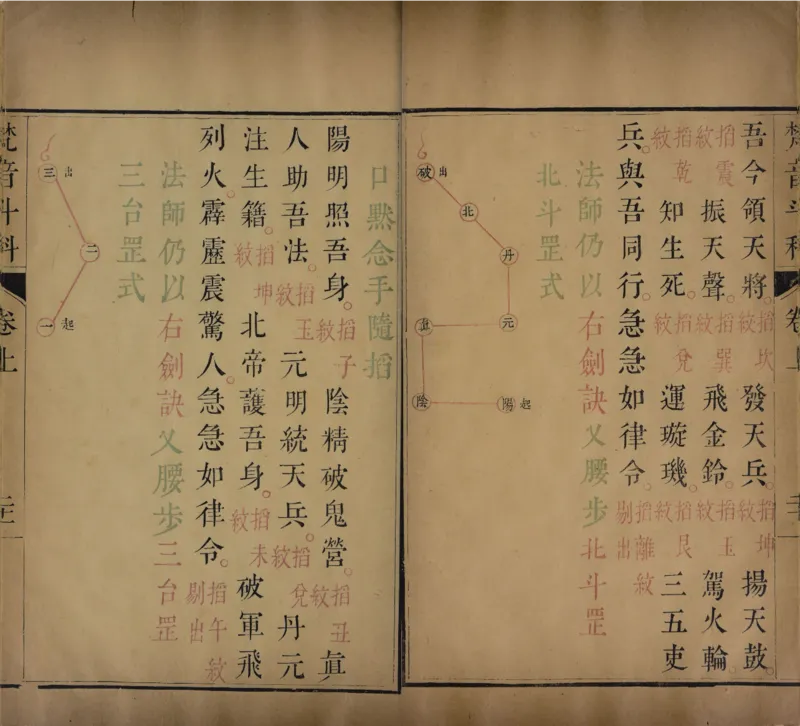 梵音斗科 卷上
吾今領天將。掐坎紋發天兵。掐坤紋揚天鼓。
掐震紋振天聲。掐巽紋飛金鈴。掐玉紋駕火輪。
掐乾紋知生死。掐兌紋運璇璣。掐艮紋三五吏
兵。與吾同行。急急如律令。掐離紋剔出
法師仍以右劍訣叉腰步北斗罡
北斗罡式
破 出
北
丹
元
眞
陰
陽 起
口默念手隨掐
陽明照吾身。掐子紋陰精破鬼營。掐丑紋眞
人助吾法。掐玉紋元明統天兵。掐兌紋丹元
注生籍。掐坤紋北帝護吾身。掐未紋破軍飛
列火。霹靂震驚人。急急如律令。掐午紋剔出
法師仍以右劍訣叉腰步三台罡
三台罡式
三 出
二
一 起
梵音斗科 卷上